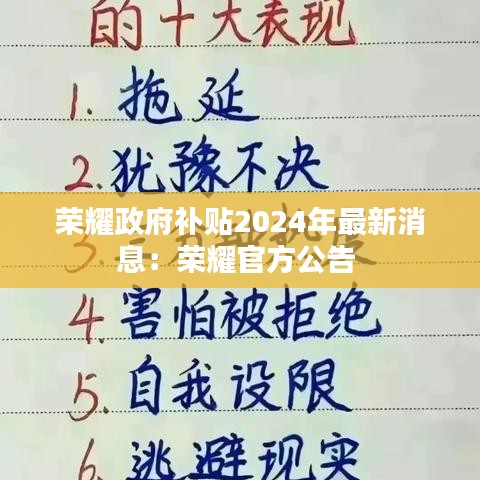 的十大表现
1. 拖延
2. 犹豫不决
荣耀政府补贴2024年最新消
息：荣耀官方公告
3.
4. 害怕被拒绝
5. 自我设限
6. 逃避现实